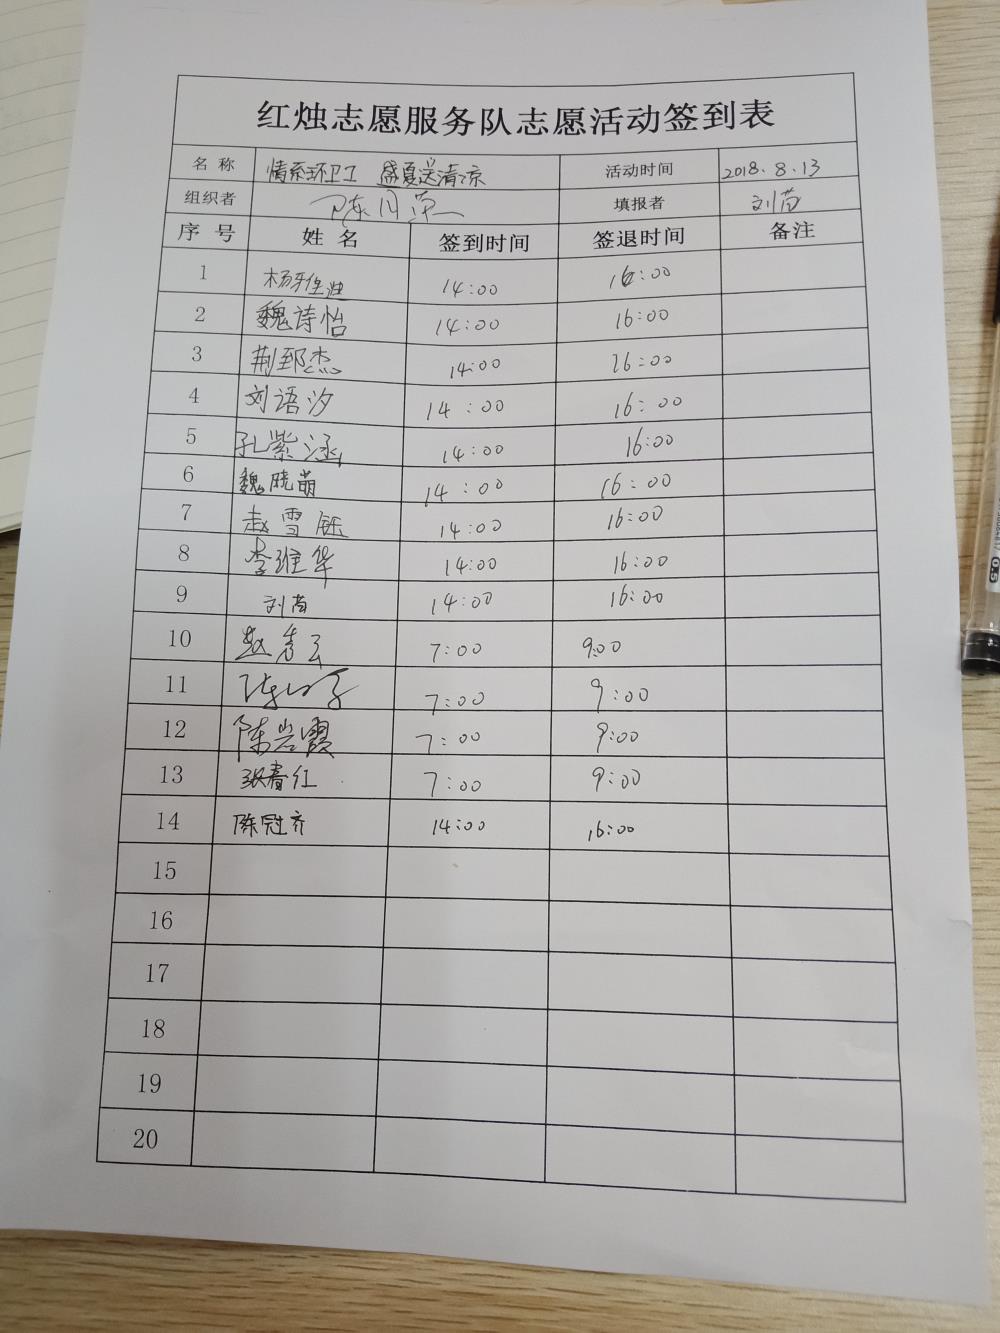 红烛志愿服务队志愿活动签到表
名 称 情系环卫工 盛夏送清凉 活动时间 2018.8.13
组织者 填报者 刘苗
序 号 姓 名 签到时间 签退时间 备注
1 14:00 16:00
2 魏诗怡 14:00 16:00
3 荆郅杰 14:00 16:00
4 刘语汐 14:00 16:00
5 孔紫涵 14:00 16:00
6 魏晓萌 14:00 16:00
7 赵雪钰 14:00 16:00
8 李维华 14:00 16:00
9 刘苗 14:00 16:00
10 赵秀云 7:00 9:00
11 7:00 9:00
12 陈岩霞 7:00 9:00
13 张春红 7:00 9:00
14 陈冠齐 14:00 16:00
15
16
17
18
19
20
0.5